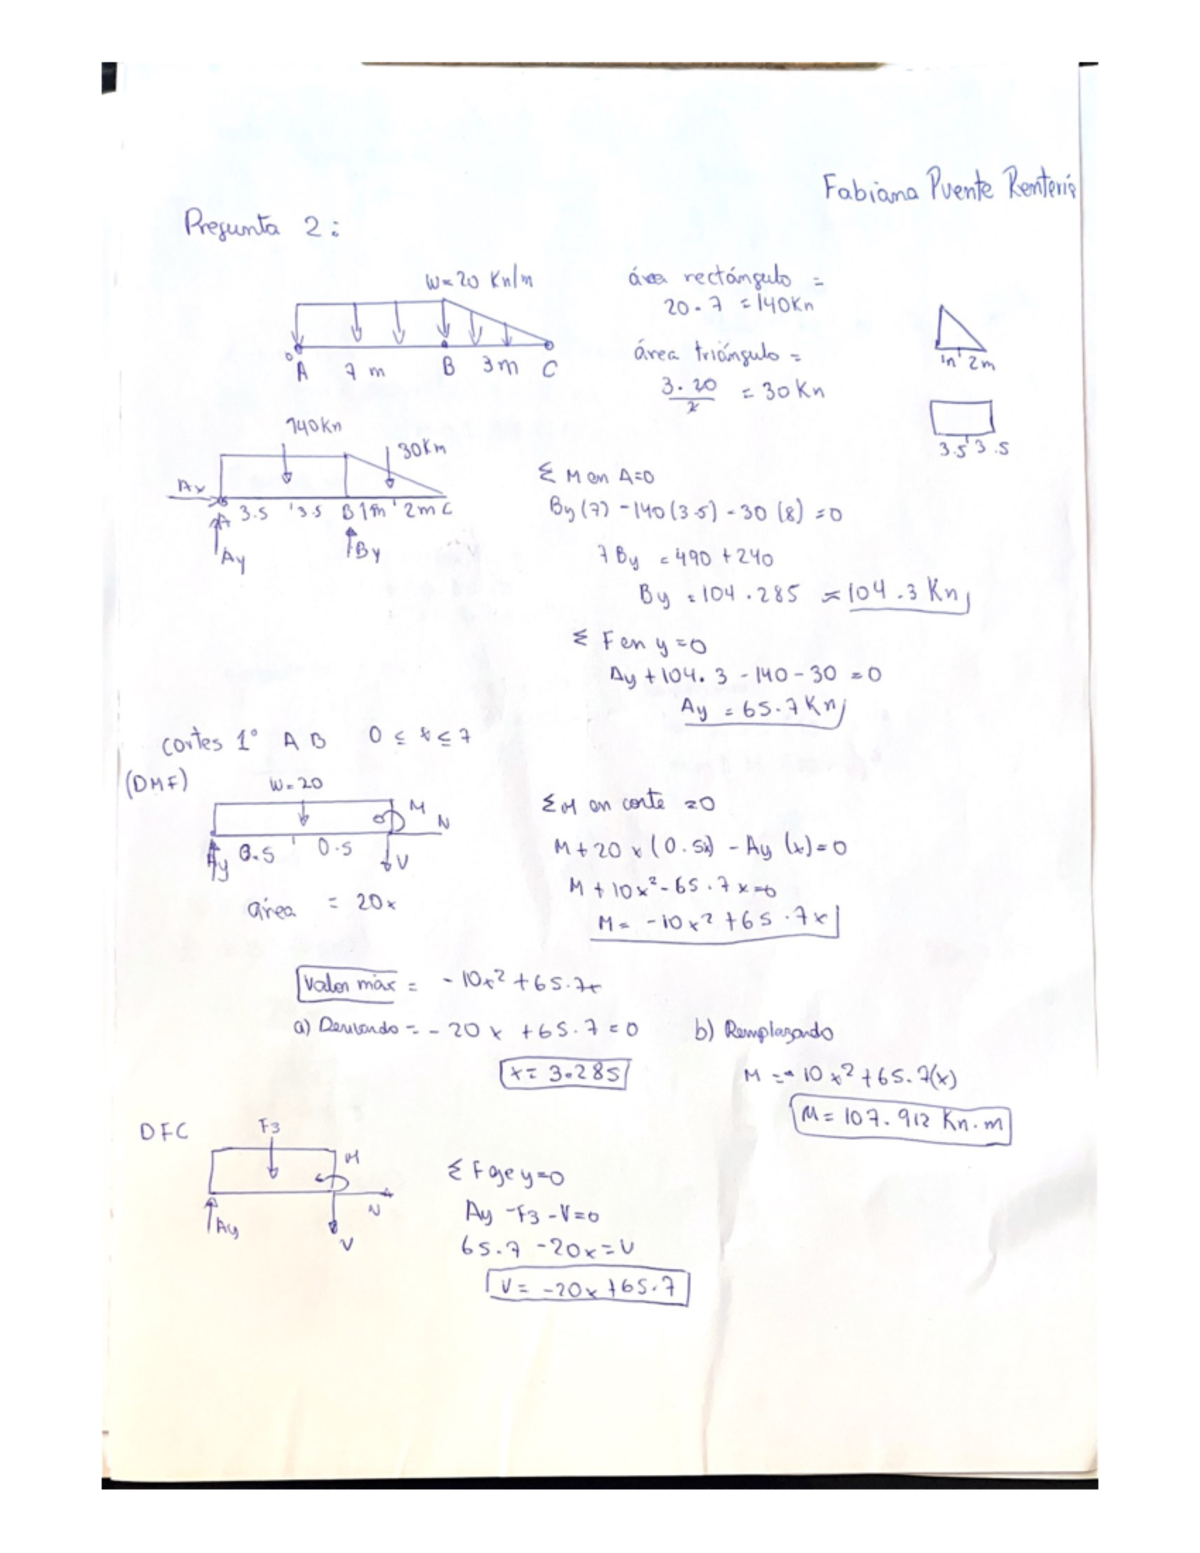 Fabiana Puente Rentería
Pregunta 2:
W=20 Kn/m
A 7 m B 3m C
área rectángulo =
20 . 7 = 140Kn
área triángulo =
3. 20
2
= 30 Kn
1m 2m
3.5 3.5
140Kn
30Km
Ax
A 3.5 3.5 B 1m 2m C
Ay
By
Σ M en A=0
By (7) -140 (3.5) - 30 (8) = 0
7 By = 490 + 240
By = 104.285 ≈ 104.3 Kn
Σ F en y = 0
Ay + 104.3 - 140 - 30 = 0
Ay = 65.7 Kn
Cortes 1° A B 0 ≤ x ≤ 7
(DMF)
W=20
M
N
Ay 0.5 0.5
V
área = 20x
Σ M en corte = 0
M + 20 x (0.5x) - Ay (x) = 0
M + 10x² - 65.7x = 0
M = -10x² + 65.7x
Valor máx = - 10x² + 65.7x
a) Derivando = - 20 x + 65.7 = 0
x = 3.285
b) Remplazando
M = - 10 x² + 65.7(x)
M = 107.912 Kn.m
DFC
F3
M
N
Ay
V
Σ F eje y=0
Ay - F3 - V = 0
65.7 - 20x = V
V = -20x + 65.7